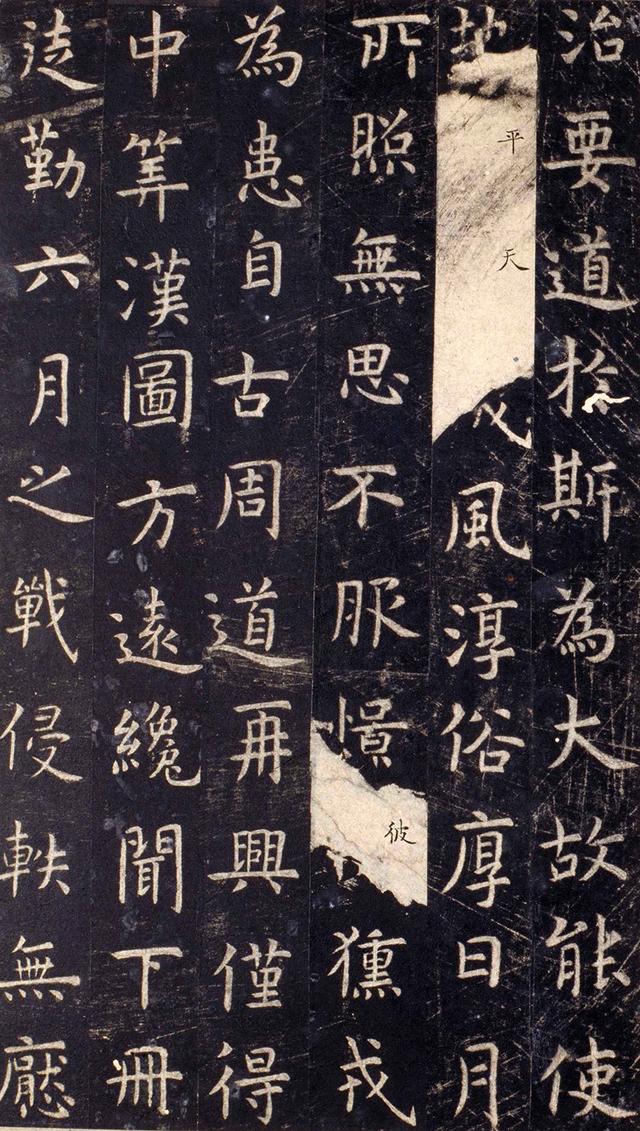 治要道扵斯為大故能使
地平天成風俗淳厚日月
所照無思不服憬彼獯戎
為患自古周道再興僅得
中筭漢圖方遠纔聞下冊
迭勤六月之戰侵軼無厭